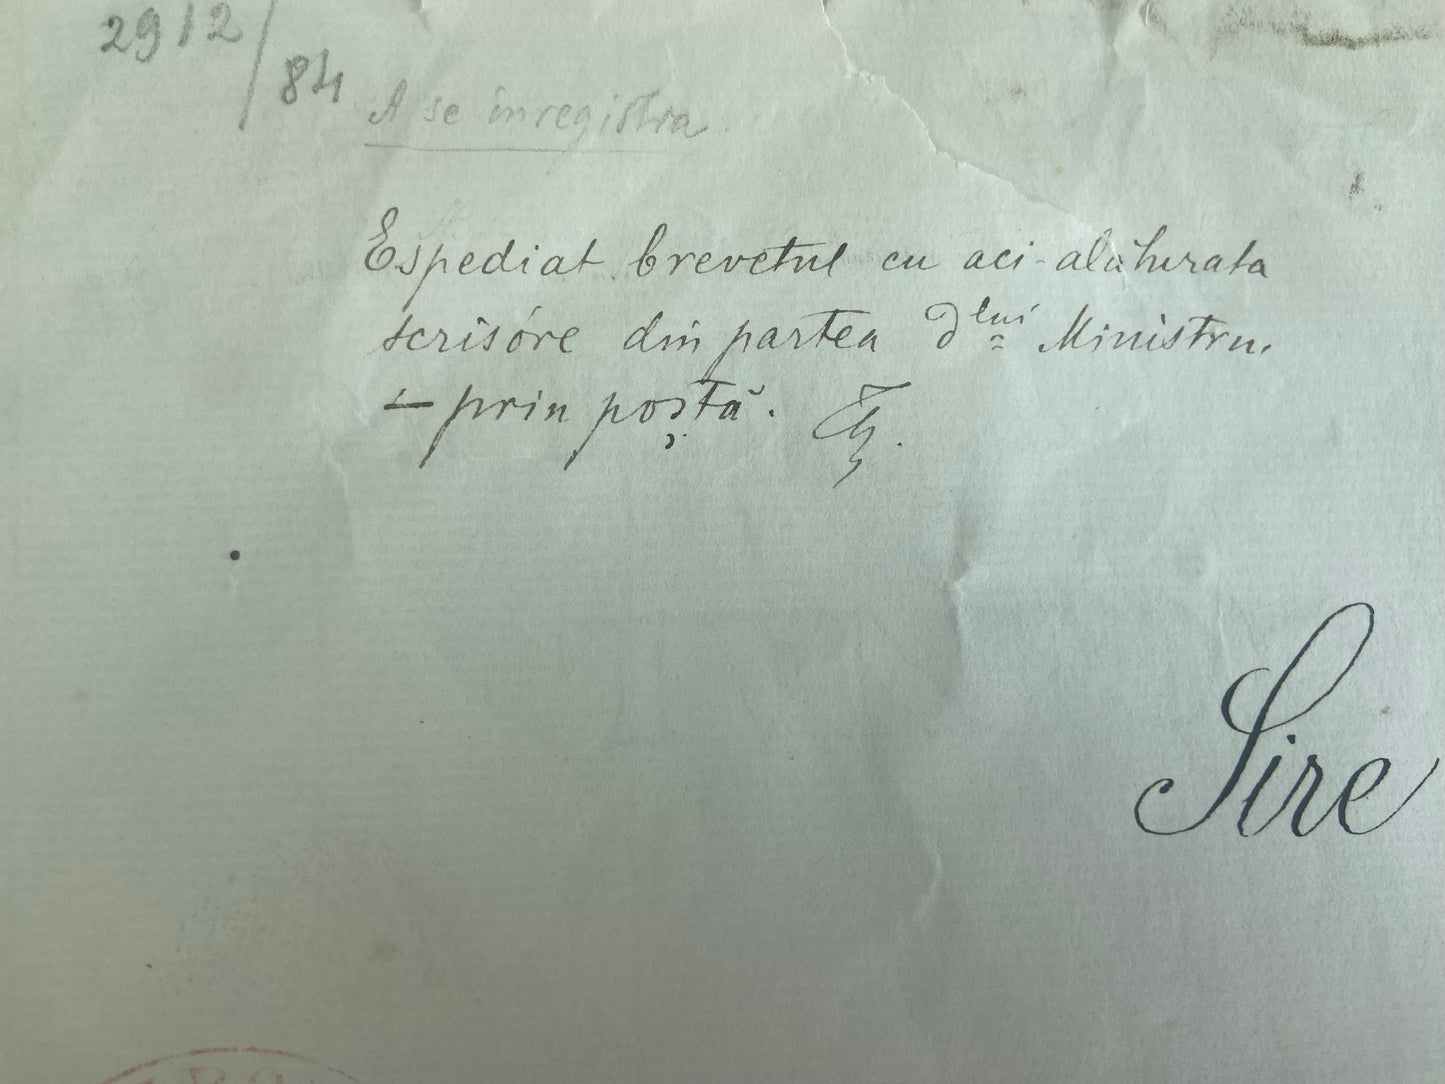 2912/84
A se inregistra
Espediat brevetul cu aci-alăturata
scrisóre din partea dlui Ministru.
— prin poștă.
Sire